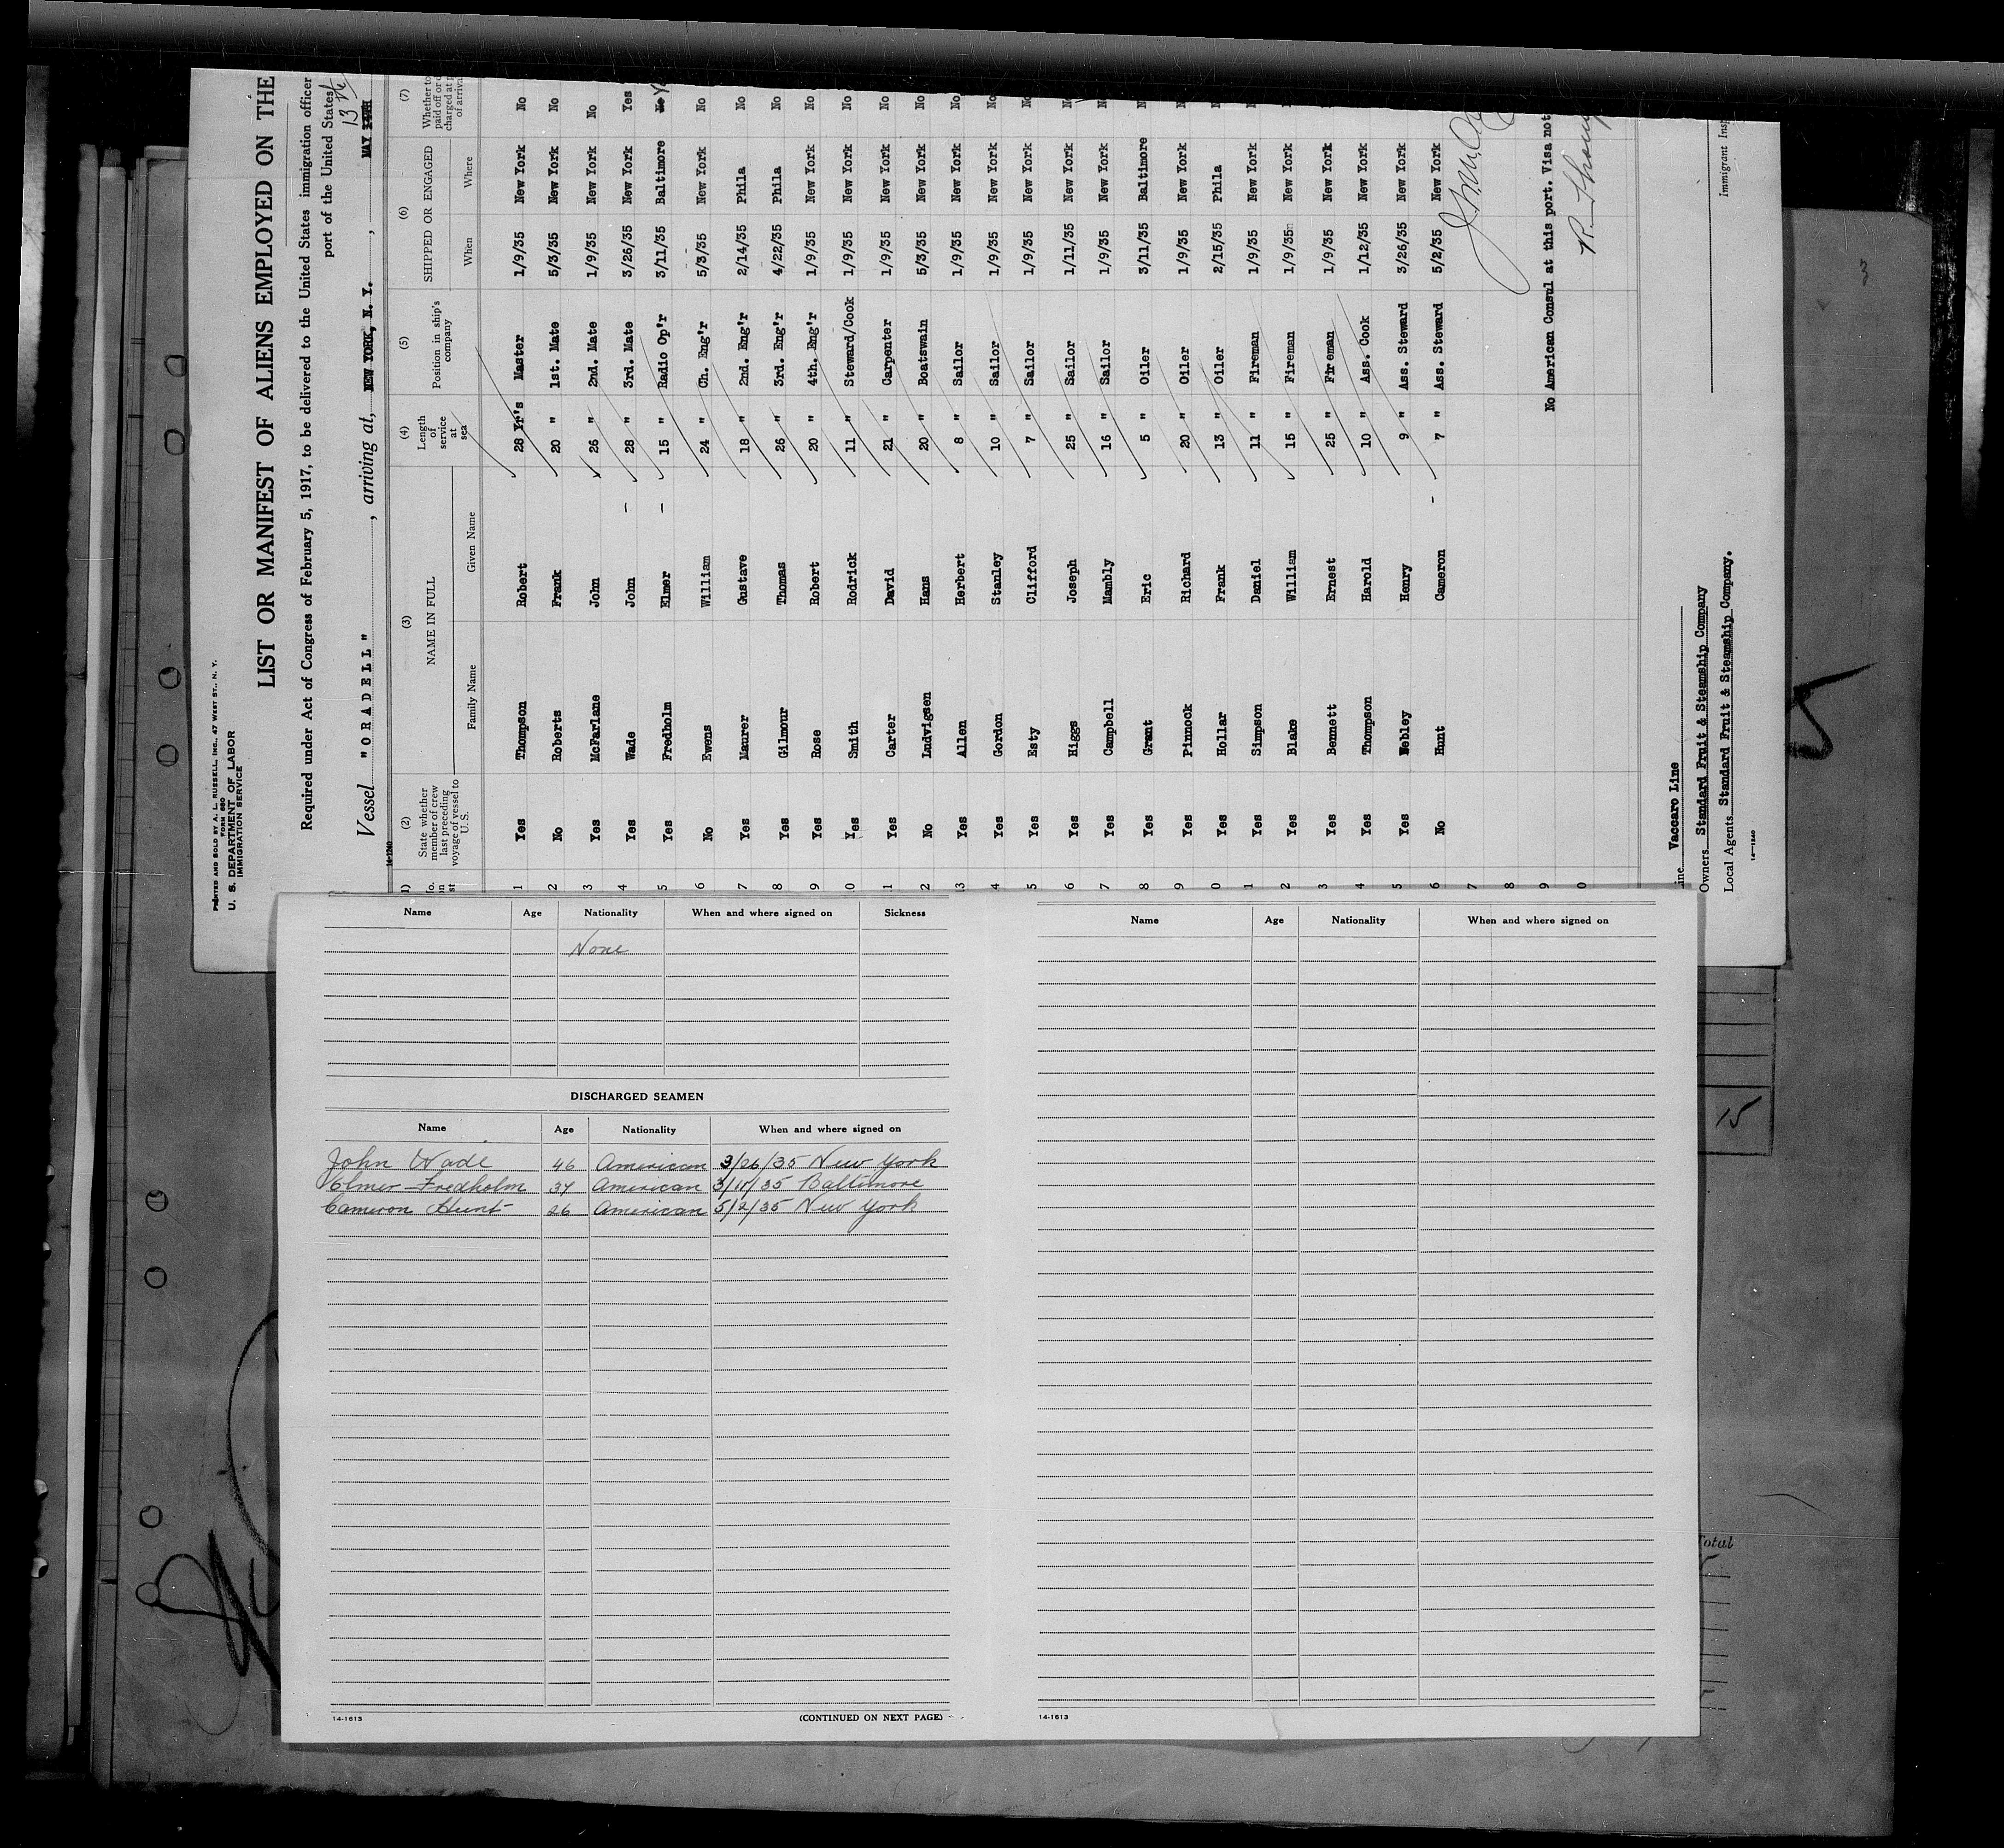 PRINTED AND SOLD BY A. L. RUSSELL, INC., 47 WEST ST., N. Y.
FORM 680
U. S. DEPARTMENT OF LABOR
IMMIGRATION SERVICE
LIST OR MANIFEST OF ALIENS EMPLOYED ON THE
Required under Act of Congress of February 5, 1917, to be delivered to the United States immigration officer
port of the United States
13th
Vessel "ORADELL", arriving at, NEW YORK, N. Y., MAY
14-1240
(2) (3) (4) (5) (6) (7)
State whether member of crew last preceding voyage of vessel to U. S. NAME IN FULL Length of service at sea Position in ship's company SHIPPED OR ENGAGED Whether to paid off or charged at of arrival
Family Name Given Name When Where
1 Yes Thompson Robert 28 Yr's Master 1/9/35 New York No
2 No Roberts Frank 20 " 1st. Mate 5/3/35 New York No
3 Yes McFarlane John 26 " 2nd. Mate 1/9/35 New York No
4 Yes Wade John – 28 " 3rd. Mate 3/26/35 New York Yes
5 Yes Fredholm Elmer – 15 " Radio Op'r 3/11/35 Baltimore No Y
6 No Ewens William 24 " Ch. Eng'r 5/3/35 New York No
7 Yes Maurer Gustave 18 " 2nd. Eng'r 2/14/35 Phila No
8 Yes Gilmour Thomas 26 " 3rd. Eng'r 4/22/35 Phila No
9 Yes Rose Robert 20 " 4th. Eng'r 1/9/35 New York No
0 Yes Smith Rodrick 11 " Steward/Cook 1/9/35 New York No
1 Yes Carter David 21 " Carpenter 1/9/35 New York No
2 No Ludvigsen Hans 20 " Boatswain 5/3/35 New York No
13 Yes Allen Herbert 8 " Sailor 1/9/35 New York No
4 Yes Gordon Stanley 10 " Sailor 1/9/35 New York No
5 Yes Esty Clifford 7 " Sailor 1/9/35 New York No
6 Yes Higgs Joseph 25 " Sailor 1/11/35 New York No
7 Yes Campbell Mambly 16 " Sailor 1/9/35 New York No
8 Yes Grant Eric 5 " Oiler 3/11/35 Baltimore N
9 Yes Pinnock Richard 20 " Oiler 1/9/35 New York N
0 Yes Hollar Frank 13 " Oiler 2/15/35 Phila N
1 Yes Simpson Daniel 11 " Fireman 1/9/35 New York
2 Yes Blake William 15 " Fireman 1/9/35 New York
3 Yes Bennett Ernest 25 " Fireman 1/9/35 New York
4 Yes Thompson Harold 10 " Ass. Cook 1/12/35 New York
5 Yes Webley Henry 9 " Ass. Steward 3/26/35 New York
6 No Hunt Cameron – 7 " Ass. Steward 5/2/35 New York
7
8
9
0
No American Consul at this port. Visa not
Immigrant Insp
Line Vaccaro Line
Owners Standard Fruit & Steamship Company
Local Agents Standard Fruit & Steamship Company.
14-1240
Name Age Nationality When and where signed on Sickness
None
DISCHARGED SEAMEN
Name Age Nationality When and where signed on
John Wade 46 American 3/26/35 New York
Elmer Fredholm 37 American 3/11/35 Baltimore
Cameron Hunt 26 American 5/2/35 New York
14-1613
(CONTINUED ON NEXT PAGE)
Name Age Nationality When and where signed on
14-1613
15
Total
5
3